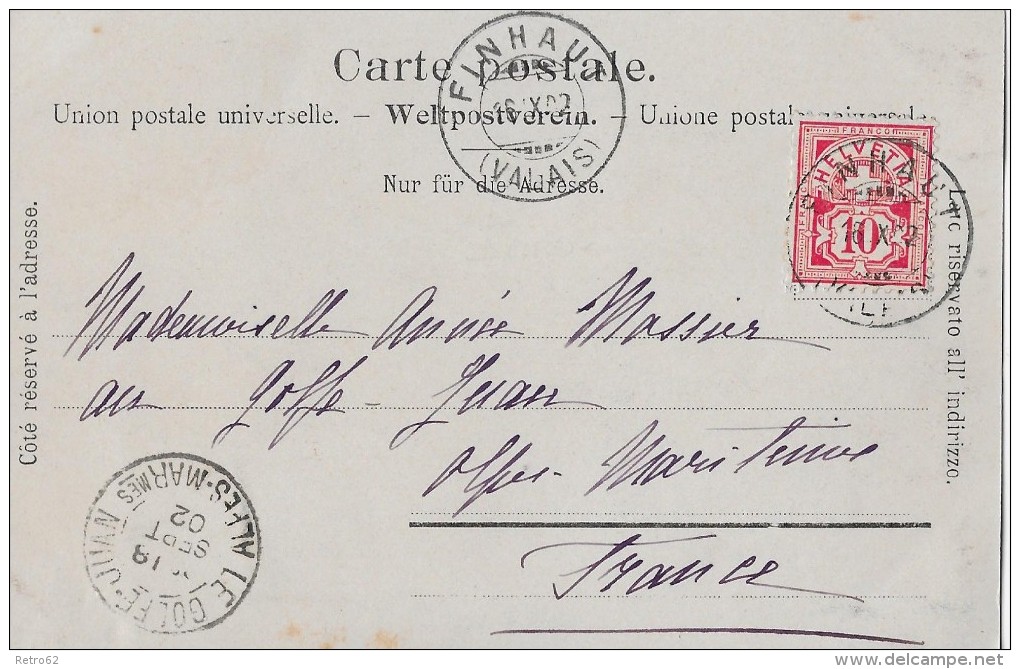 Carte postale.
Union postale universelle. — Weltpostverein. — Unione postale universale
Nur für die Adresse.
Côté réservé à l'adresse.
Lato riservato all' indirizzo.
FINHAUT
16 IX 02
(VALAIS)
FRANCO
HELVETIA
10
FINHAUT
16 IX 02
Mademoiselle Massier
au Golfe-Juan
Alpes Maritimes
France
LE GOLFE-JUAN
18
SEPT
02
ALPES-MARMES
Retro62
delcampe.net